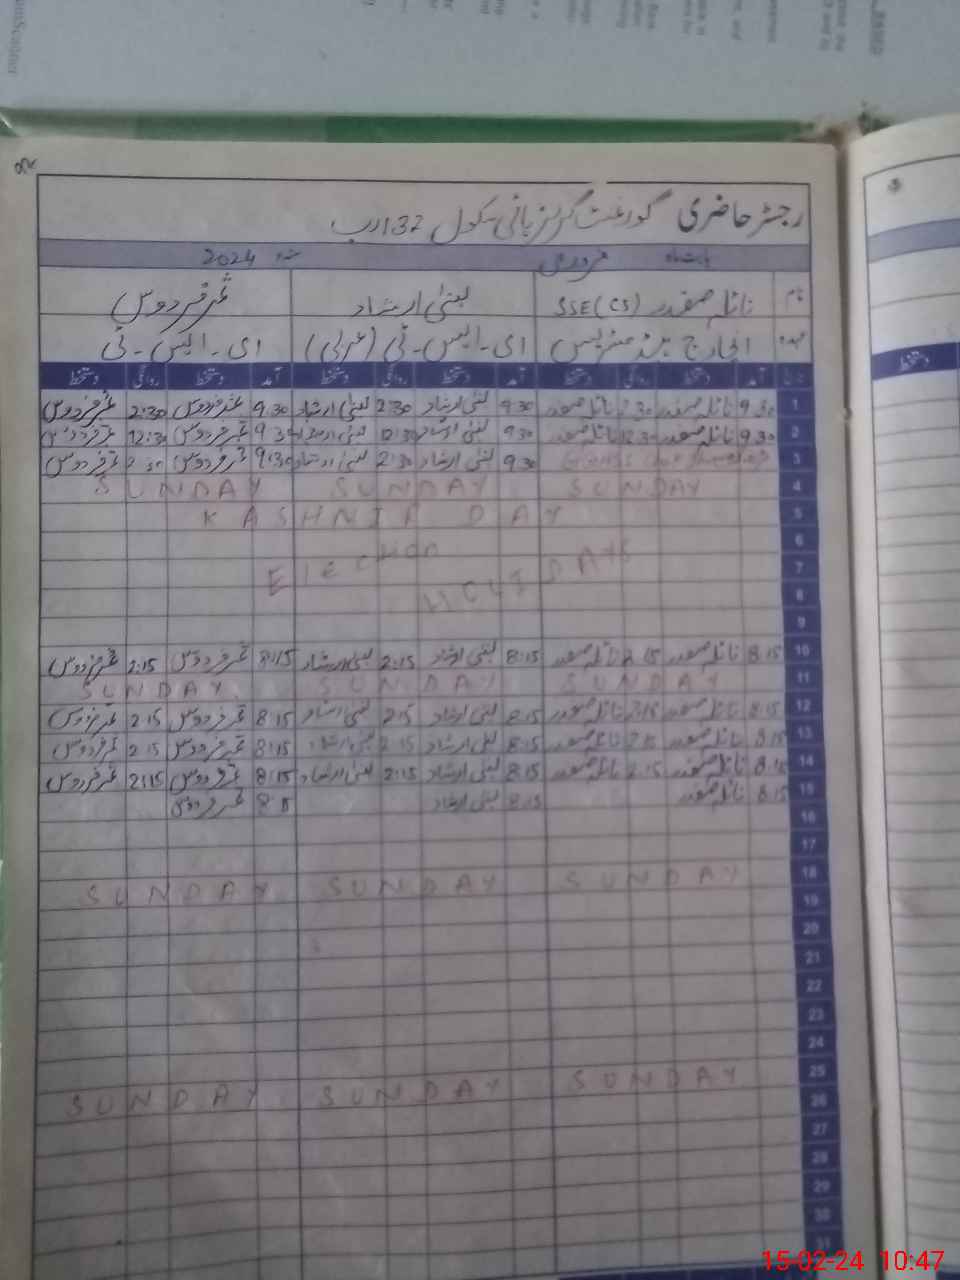 رجسٹر حاضری گورنمنٹ گرلز ہائی سکول 132 ر ب
بابت ماہ فروری سنہ 2024
نام نائلہ صفدر SSE(CS) لبنیٰ ارشاد ثمر فردوس
عہدہ انچارج ہیڈ مسٹریس ای۔ایس۔ٹی (عربی) ای۔ایس۔ٹی
تاریخ آمد دستخط روانگی دستخط آمد دستخط روانگی دستخط آمد دستخط روانگی دستخط
1 9.30 نائلہ صفدر 2.30 نائلہ صفدر 9.30 لبنیٰ ارشاد 2:30 لبنیٰ ارشاد 9.30 ثمر فردوس 2:30 ثمر فردوس
2 9.30 نائلہ صفدر 12.30 نائلہ صفدر 9.30 لبنیٰ ارشاد 12:30 لبنیٰ ارشاد 9.30 ثمر فردوس 12:30 ثمر فردوس
3 9.30 لبنیٰ ارشاد 2:30 لبنیٰ ارشاد 9:30 ثمر فردوس 2:30 ثمر فردوس
4 SUNDAY SUNDAY SUNDAY
5 KASHMIR DAY
6
7 Election HOLIDAYS
8
9
10 8.15 نائلہ صفدر 2.15 نائلہ صفدر 8:15 لبنیٰ ارشاد 2:15 لبنیٰ ارشاد 8:15 ثمر فردوس 2:15 ثمر فردوس
11 SUNDAY SUNDAY SUNDAY
12 8:15 نائلہ صفدر 2:15 نائلہ صفدر 8:15 لبنیٰ ارشاد 2:15 لبنیٰ ارشاد 8:15 ثمر فردوس 2:15 ثمر فردوس
13 8:15 نائلہ صفدر 2:15 نائلہ صفدر 8:15 لبنیٰ ارشاد 2:15 لبنیٰ ارشاد 8:15 ثمر فردوس 2:15 ثمر فردوس
14 8:15 نائلہ صفدر 2:15 نائلہ صفدر 8:15 لبنیٰ ارشاد 2:15 لبنیٰ ارشاد 8:15 ثمر فردوس 2:15 ثمر فردوس
15 8.15 نائلہ صفدر 8:15 لبنیٰ ارشاد 8:15 ثمر فردوس
16
17
18 SUNDAY SUNDAY SUNDAY
19
20
21
22
23
24
25 SUNDAY SUNDAY SUNDAY
26
27
28
29
30
31
دستخط
15-02-24 10:47